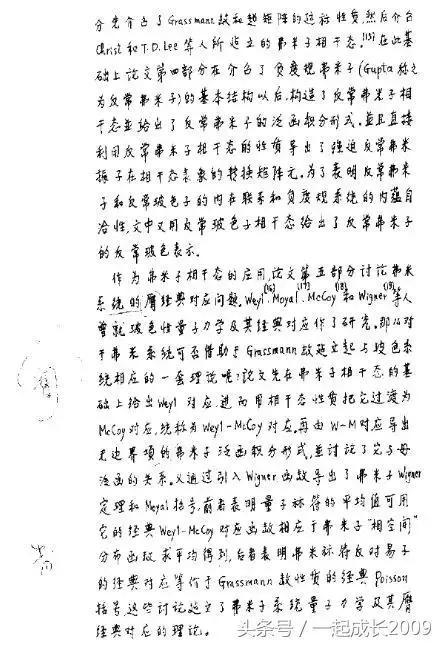 分先介绍了Grassmann数和超矩阵的运标性质然后介绍
Christ和T.D.Lee等人所建立的弗米子相干态.[15]在此基
础上论文第四部分在介绍了负度规弗米子(Gupta称之
为反常弗米子)的基本结构以后,构造了反常弗米子相
干态並给出了反常弗米子的泛函积分形式.並且直接
利用反常弗米子相干态的性质导出了强迫反常弗米
振子在相干态表象的转换矩阵元.为了表明反常弗米
子和反常玻色子的内在联系和负度规系统的内蕴自
洽性,文中又用反常玻色子相干态给出了反常弗米子
的反常玻色表示.
作为弗米子相干态的应用,论文第五部分讨论弗米
系统的膺经典对应问题.Weyl[16].Moyal[17].McCoy[18]和Wigner[19]等人
曾就玻色性量子力学及其经典对应作了研究.那么对
于弗米系统可否借助于Grassmann数建立起与玻色系
统相应的一套理论呢?论文先在弗米子相干态的基
础上给出Weyl对应进而用相干态性质把它过渡为
McCoy对应,统称为Weyl-McCoy对应.再由W-M对应导出
无边界项的弗米子泛函积分形式,並讨论了它与母
泛函的关系.又通过引入Wigner函数导出了弗米子Wigner
定理和Moyal括号,前者表明量子标符的平均值可用
它的经典Weyl-McCoy对应函数相应于弗米子"相空间"
分布函数求平均得到,后者表明弗米标符反对易子
的经典对应等价于Grassmann数性质的经典Poisson
括号,这些讨论建立了弗米子系统量子力学及其膺
经典对应的理论。
头条号/一起成长2009